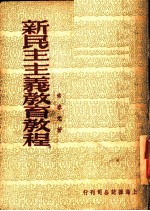 新民主主義教育教程
上海雜誌公司刊行